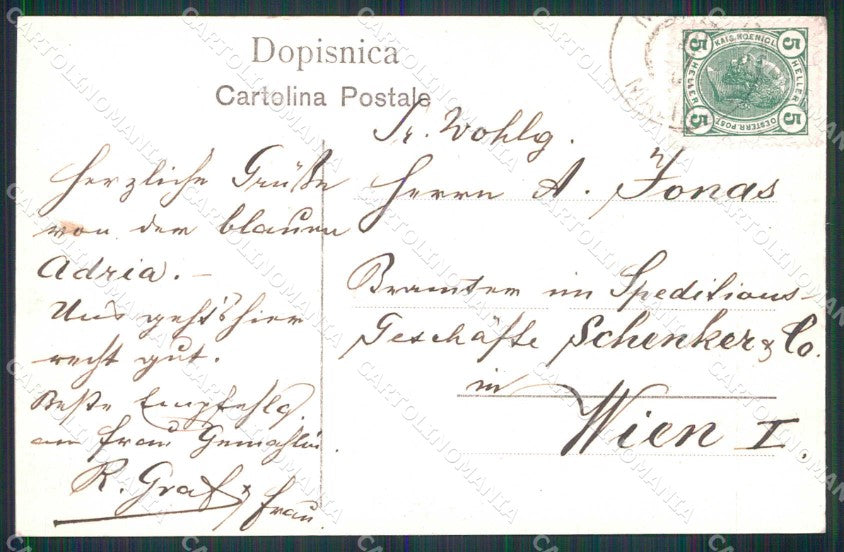 Dopisnica
Cartolina Postale
KAIS. KOENIGL.
OESTERR. POST
5 HELLER 5
5 HELLER 5
Herzliche Grüße
von der blauen
Adria. –
Uns geht's hier
recht gut.
Beste Empfehlg.
an Frau Gemahlin.
R. Graf & Frau.
Sr. Wohlg.
Herrn A. Jonas
Beamter im Speditions-
Geschäfte Schenker & Co.
in
Wien I.
CARTOLINOMANIA